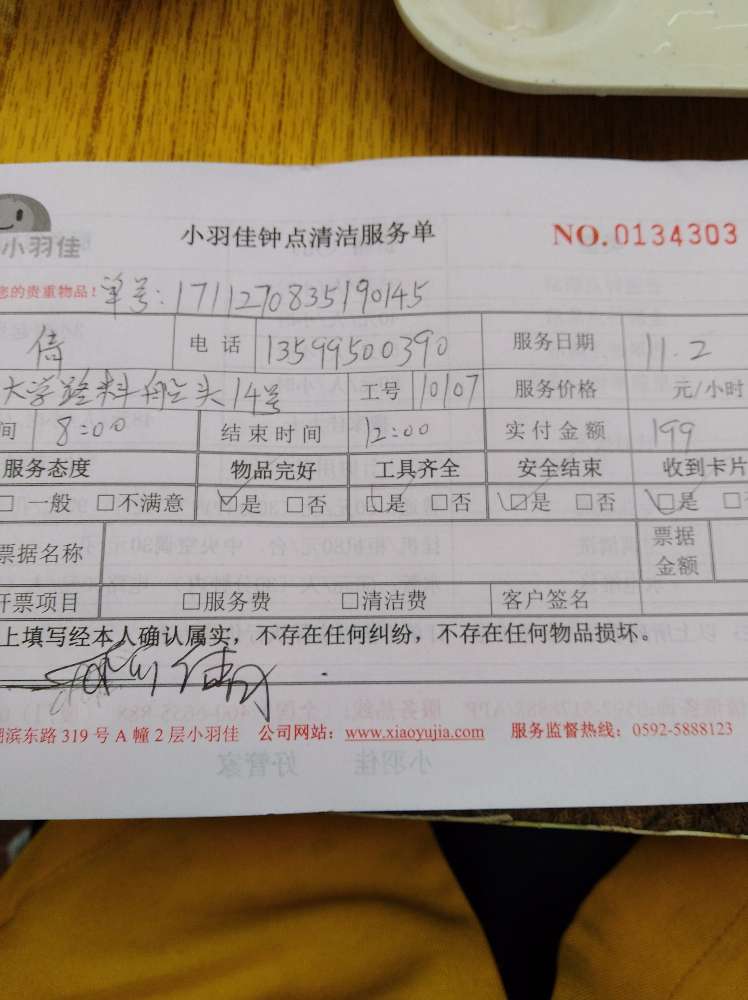 小羽佳
小羽佳钟点清洁服务单 NO.0134303
您的贵重物品! 单号:1711270835190145
倩 电话 13599500390 服务日期 11.2
大学路料船头14号 工号 10107 服务价格 元/小时
间 8:00 结束时间 12:00 实付金额 199
服务态度 物品完好 工具齐全 安全结束 收到卡片
□一般 □不满意 ☑是 □否 ☑是 □否 ☑是 □否 ☑是
票据名称 票据金额
开票项目 □服务费 □清洁费 客户签名
上填写经本人确认属实,不存在任何纠纷,不存在任何物品损坏。
滨东路319号A幢2层小羽佳 公司网站:www.xiaoyujia.com 服务监督热线:0592-5888123